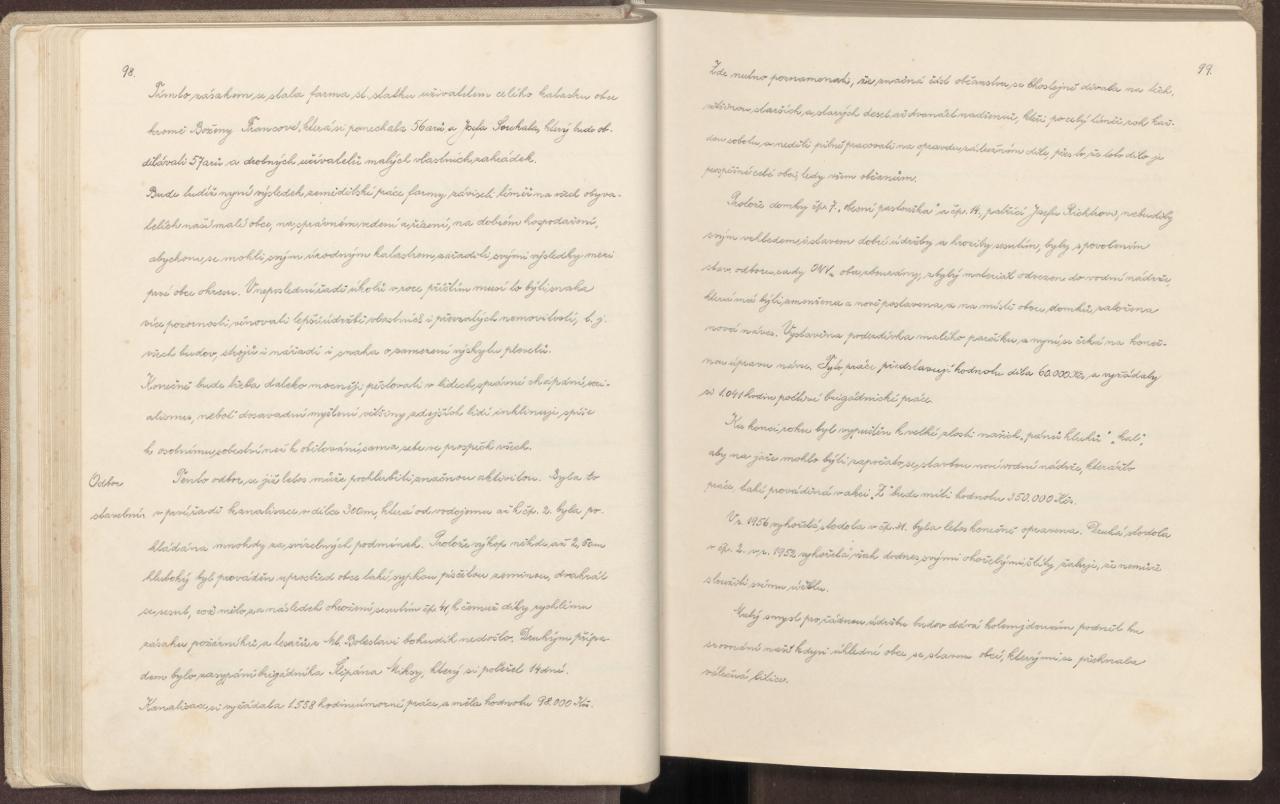 98.
Tímto zásahem se stala farma st. statku uživatelem celého katastru obce
kromě Boženy Francové, která si ponechala 56 arů a Josefa Součka, který bude ob-
dělávati 57 arů a drobných uživatelů malých vlastních zahrádek.
Bude tudíž nyní výsledek zemědělské práce farmy záviseti téměř na všech obyva-
telích naší malé obce, na správném vedení a řízení, na dobrém hospodaření,
abychom se mohli svým úrodným katastrem zařaditi svými výsledky mezi
prvé obce okresu. V neposlední řadě úkolů v roce příštím musí to býti snaha
více pozornosti věnovati lepší údržbě vlastních i převzatých nemovitostí, t. j.
všech budov, strojů i nářadí i snaha o zamezení výskytu plevelů.
Konečně bude třeba daleko mocněji pěstovati v lidech správné chápání soci-
alismu, neboť dosavadní myšlení většiny zdejších lidí inklinuje spíše
k osobnímu sobectví než k obětování sama sebe ve prospěch všech.
Odbor Tento odbor se již letos může pochlubiti značnou aktivitou. Byla to
stavební. v prvé řadě kanalisace v délce 300 m, která od vodojemu až k čp. 2. byla po-
kládána mnohdy za svízelných podmínek. Protože výkop někde až 2,5 m
hluboký byl prováděn uprostřed obce také sypkou písčitou zeminou, dvakrát
se sesul, což mělo za následek ohrožení sesutím čp. 41, k čemuž díky rychlému
zásahu požárníků a tesařů z Ml. Boleslavi bohudík nedošlo. Druhým přípa-
dem bylo zasypání brigádníka Štěpána Miksy, který si poležel 14 dní.
Kanalisace si vyžádala 1.558 hodin úmorné práce a měla hodnotu 98.000 Kčs.
99.
Zde nutno poznamenati, že značná část občanstva se lhostejně dívala na těch,
většinou starších a starých deset až dvanáct nadšenců, kteří po celý téměř rok kaž-
dou sobotu a neděli pilně pracovali na opravdu záslužném díle, přesto, že toto dílo je
prospěšné celé obci, tedy všem občanům.
Protože domky čp. 7. "obecní pastouška" a čp. 14. patřící Josefu Richtrovi, nebudily
svým vzhledem i stavem dobré údržby a hrozily sesutím, byly s povolením
stav. odboru rady ONV oba zbourány, zbylý materiál odvezen do vodní nádrže,
která má býti zmenšena a nově postavena, a na místě obou domků založena
nová náves. Výstavěna podezdívka malého parčíku a nyní se čeká na koneč-
nou úpravu návse. Tyto práce představují hodnotu díla 60.000 Kčs, a vyžádaly
si 1.041 hodin poctivé brigádnické práce.
Ke konci roku byl vypuštěn k velké zlosti našich "pánů kluků" "kal",
aby na jaře mohlo býti započato se stavbou nové vodní nádrže, kterážto
práce, také prováděná v akci "Z" bude míti hodnotu 350.000 Kčs.
V r. 1956 vyhořelá stodola v čp. 41. byla letos konečně opravena. Druhá stodola
v čp. 2. v r. 1952 vyhořelá však dodnes svými ohořelými štíty žaluje, že nemůže
sloužiti svému účelu.
Malý smysl pro řádnou údržbu budov dává kolemjdoucím podnět ku
srovnání naší kdysi úhledné obce, se starou obcí, kterými se přehnala
válečná litice.